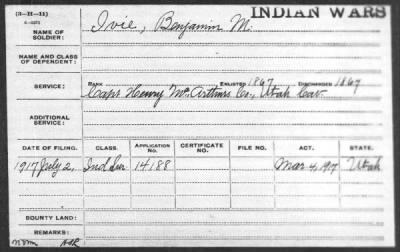 (3-H-11)
INDIAN WARS
NAME OF SOLDIER: Ivie, Benjamin M.
NAME AND CLASS OF DEPENDENT:
SERVICE: RANK ENLISTED 1867 DISCHARGED 1867
Capt Henry McArthurs Co., Utah Cav.
ADDITIONAL SERVICE:
DATE OF FILING. CLASS. APPLICATION NO. CERTIFICATE NO. FILE NO. ACT. STATE.
1917 July 2, Ind Sur 14188 Mar 4, 1917 Utah
BOUNTY LAND:
REMARKS: